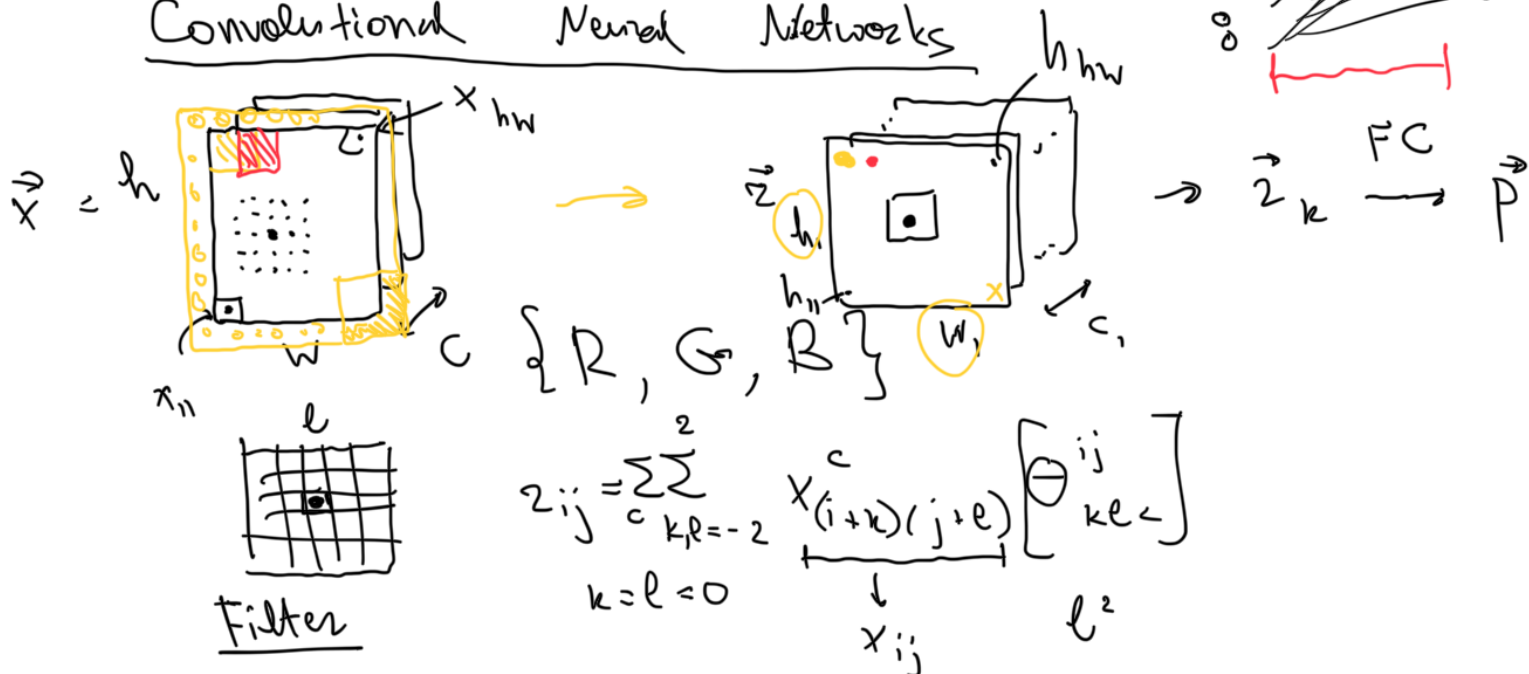 Convolutional Neural Networks
x⃗ = h
x_hw
w
c
x_11
z⃗
h_1
h_hw
h_11
w_1
c_1
→ z⃗_k FC → p⃗
{R, G, B}
l
Filter
z_ij = Σ_c Σ_{k,l=-2}^{2} x^c_{(i+k)(j+l)} [Θ^{ij}_{klc}]
k = l = 0
↓
x_ij
l²